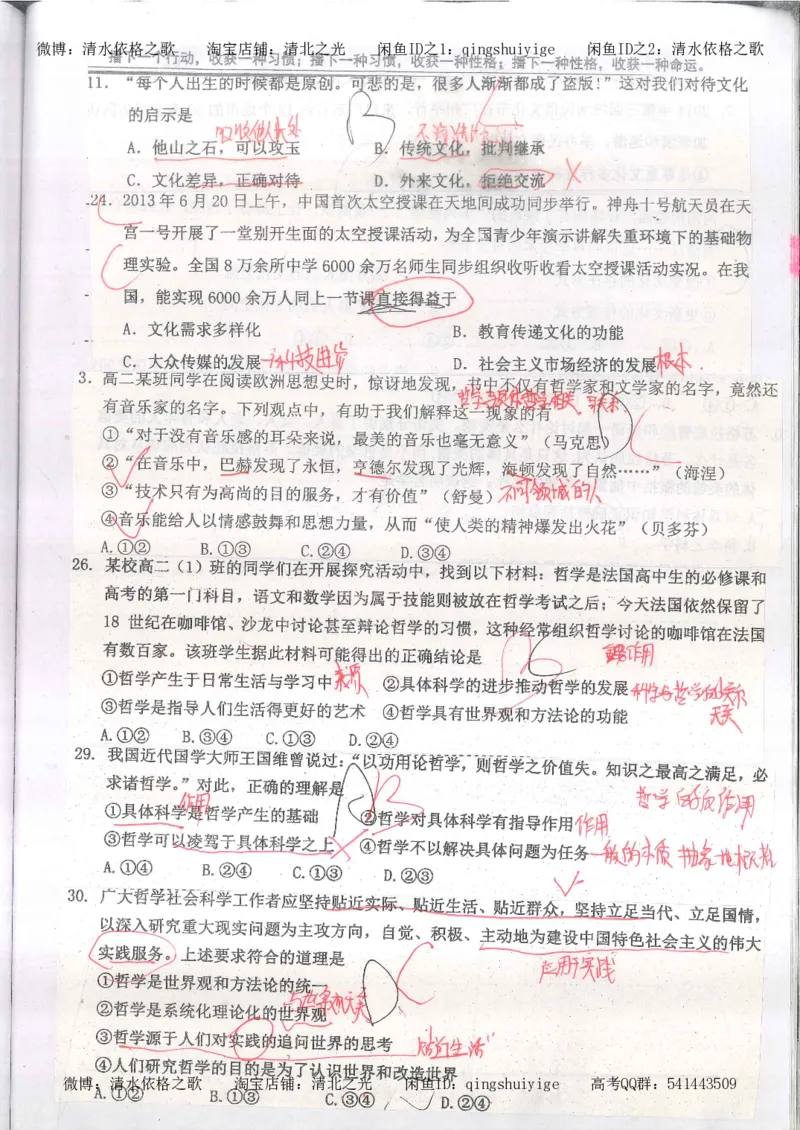 微博：清水依格之歌　淘宝店铺：清北之光　闲鱼ID之1：qingshuiyige　闲鱼ID之2：清水依格之歌
播下一个行动，收获一种习惯；播下一种习惯，收获一种性格；播下一种性格，收获一种命运。
11．“每个人出生的时候都是原创。可悲的是，很多人渐渐都成了盗版！”这对我们对待文化
的启示是
B
A．他山之石，可以攻玉　B．传统文化，批判继承
C．文化差异，正确对待　D．外来文化，拒绝交流
24．2013年6月20日上午，中国首次太空授课在天地间成功同步举行。神舟十号航天员在天
宫一号开展了一堂别开生面的太空授课活动，为全国青少年演示讲解失重环境下的基础物
理实验。全国8万余所中学6000余万名师生同步组织收听收看太空授课活动实况。在我
国，能实现6000余万人同上一节课直接得益于
C
A．文化需求多样化　B．教育传递文化的功能
C．大众传媒的发展　D．社会主义市场经济的发展
科技进步
根本．
3．高二某班同学在阅读欧洲思想史时，惊讶地发现，书中不仅有哲学家和文学家的名字，竟然还
有音乐家的名字。下列观点中，有助于我们解释这一现象的有
①“对于没有音乐感的耳朵来说，最美的音乐也毫无意义”（马克思）
②“在音乐中，巴赫发现了永恒，亨德尔发现了光辉，海顿发现了自然……”（海涅）
③“技术只有为高尚的目的服务，才有价值”（舒曼）
不同领域的人
④音乐能给人以情感鼓舞和思想力量，从而“使人类的精神爆发出火花”（贝多芬）
A.①②　B.①③　C.②④　D.③④
26．某校高二（1）班的同学们在开展探究活动中，找到以下材料：哲学是法国高中生的必修课和
高考的第一门科目，语文和数学因为属于技能则被放在哲学考试之后；今天法国依然保留了
18 世纪在咖啡馆、沙龙中讨论甚至辩论哲学的习惯，这种经常组织哲学讨论的咖啡馆在法国
有数百家。该班学生据此材料可能得出的正确结论是
①哲学产生于日常生活与学习中　②具体科学的进步推动哲学的发展
来源
科学与哲学的关系
无关
③哲学是指导人们生活得更好的艺术　④哲学具有世界观和方法论的功能
A.①②　B.③④　C.①③　D.②④
29．我国近代国学大师王国维曾说过：“以功用论哲学，则哲学之价值失。知识之最高之满足，必
求诸哲学。”对此，正确的理解是
B
作用
①具体科学是哲学产生的基础　②哲学对具体科学有指导作用
作用
③哲学可以凌驾于具体科学之上　④哲学不以解决具体问题为任务
A.①④　B.②④　C.①③　D.②③
30．广大哲学社会科学工作者应坚持贴近实际、贴近生活、贴近群众，坚持立足当代、立足国情，
以深入研究重大现实问题为主攻方向，自觉、积极、主动地为建设中国特色社会主义的伟大
实践服务。上述要求符合的道理是
应用于实践
①哲学是世界观和方法论的统一
②哲学是系统化理论化的世界观
③哲学源于人们对实践的追问世界的思考
贴近生活
④人们研究哲学的目的是为了认识世界和改造世界
微博：清水依格之歌　淘宝店铺：清北之光　闲鱼ID：qingshuiyige　高考QQ群：541443509
A.①②　B.①③　C.③④　D.②④